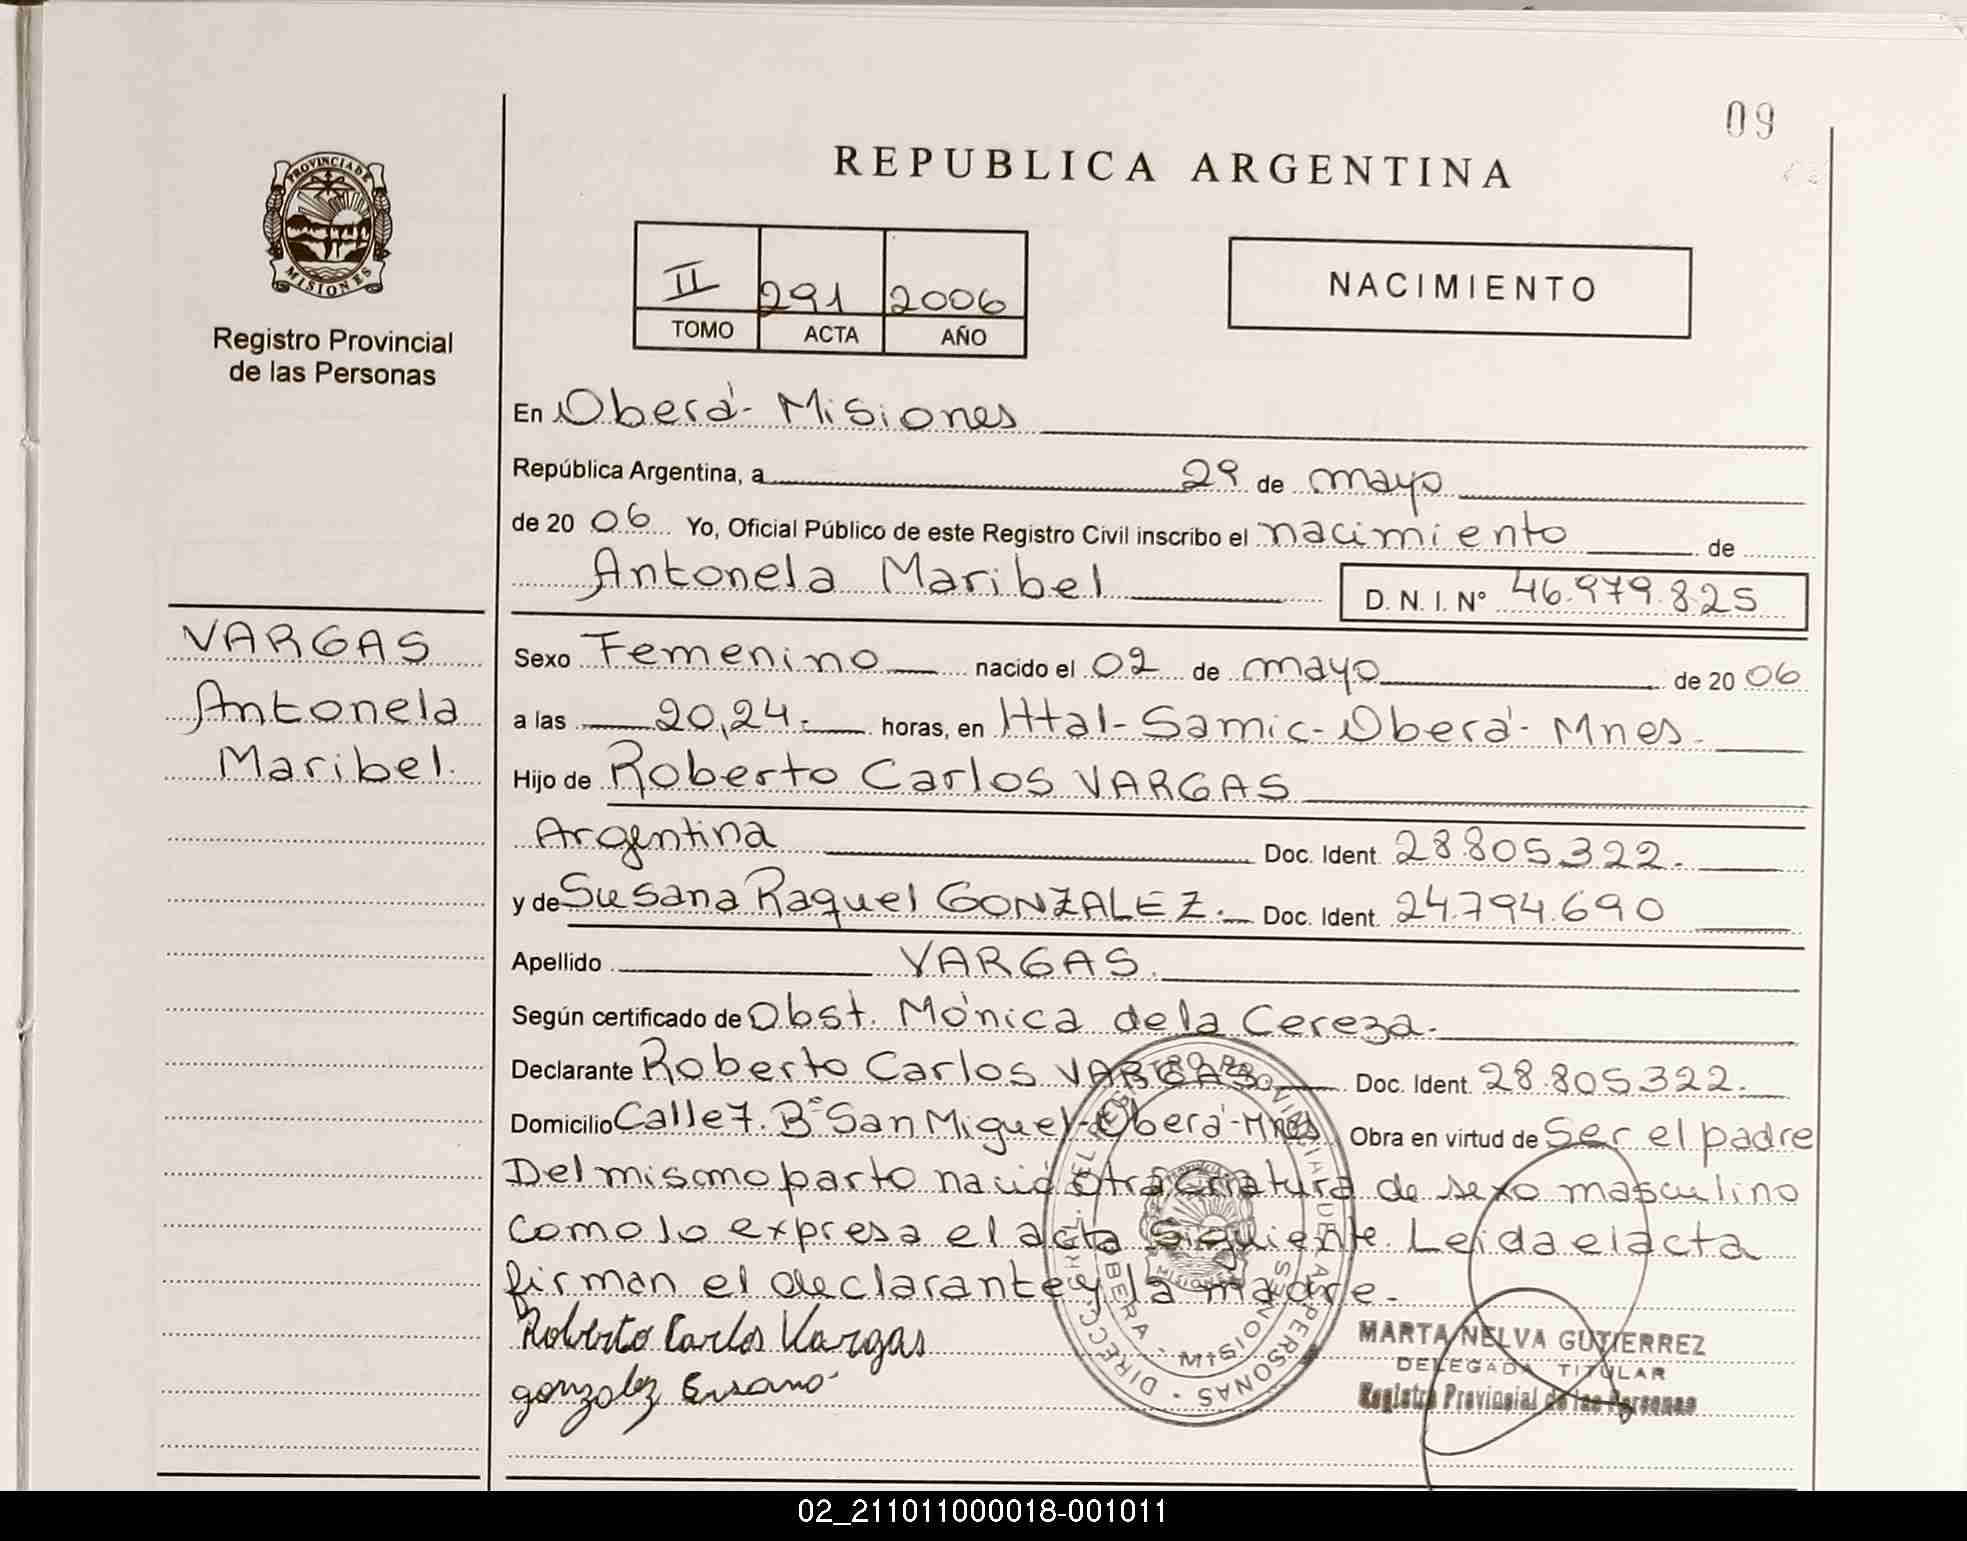 09
REPUBLICA ARGENTINA
PROVINCIA DE
MISIONES
Registro Provincial
de las Personas
II 291 2006
TOMO ACTA AÑO
NACIMIENTO
En Oberá - Misiones
República Argentina, a 29 de mayo
de 20 06 Yo, Oficial Público de este Registro Civil inscribo el nacimiento de
Antonela Maribel D. N. I. N° 46.979.825
VARGAS
Antonela
Maribel.
Sexo Femenino nacido el 02 de mayo de 20 06
a las 20,24.- horas, en Htal - Samic - Oberá - Mnes.
Hijo de Roberto Carlos VARGAS
Argentina Doc. Ident. 28.805.322.
y de Susana Raquel GONZALEZ. Doc. Ident. 24.794.690
Apellido VARGAS.
Según certificado de Obst. Mónica de la Cereza.
Declarante Roberto Carlos VARGAS Doc. Ident. 28.805.322.
Domicilio Calle 7. B° San Miguel - Oberá - Mnes Obra en virtud de Ser el padre
Del mismo parto nació otra criatura de sexo masculino
como lo expresa el acta siguiente. Leida el acta
firman el declarante y la madre.
Roberto Carlos Vargas
gonzalez
MARTA NELVA GUTIERREZ
DELEGADA TITULAR
Registro Provincial de las Personas
02_211011000018-001011